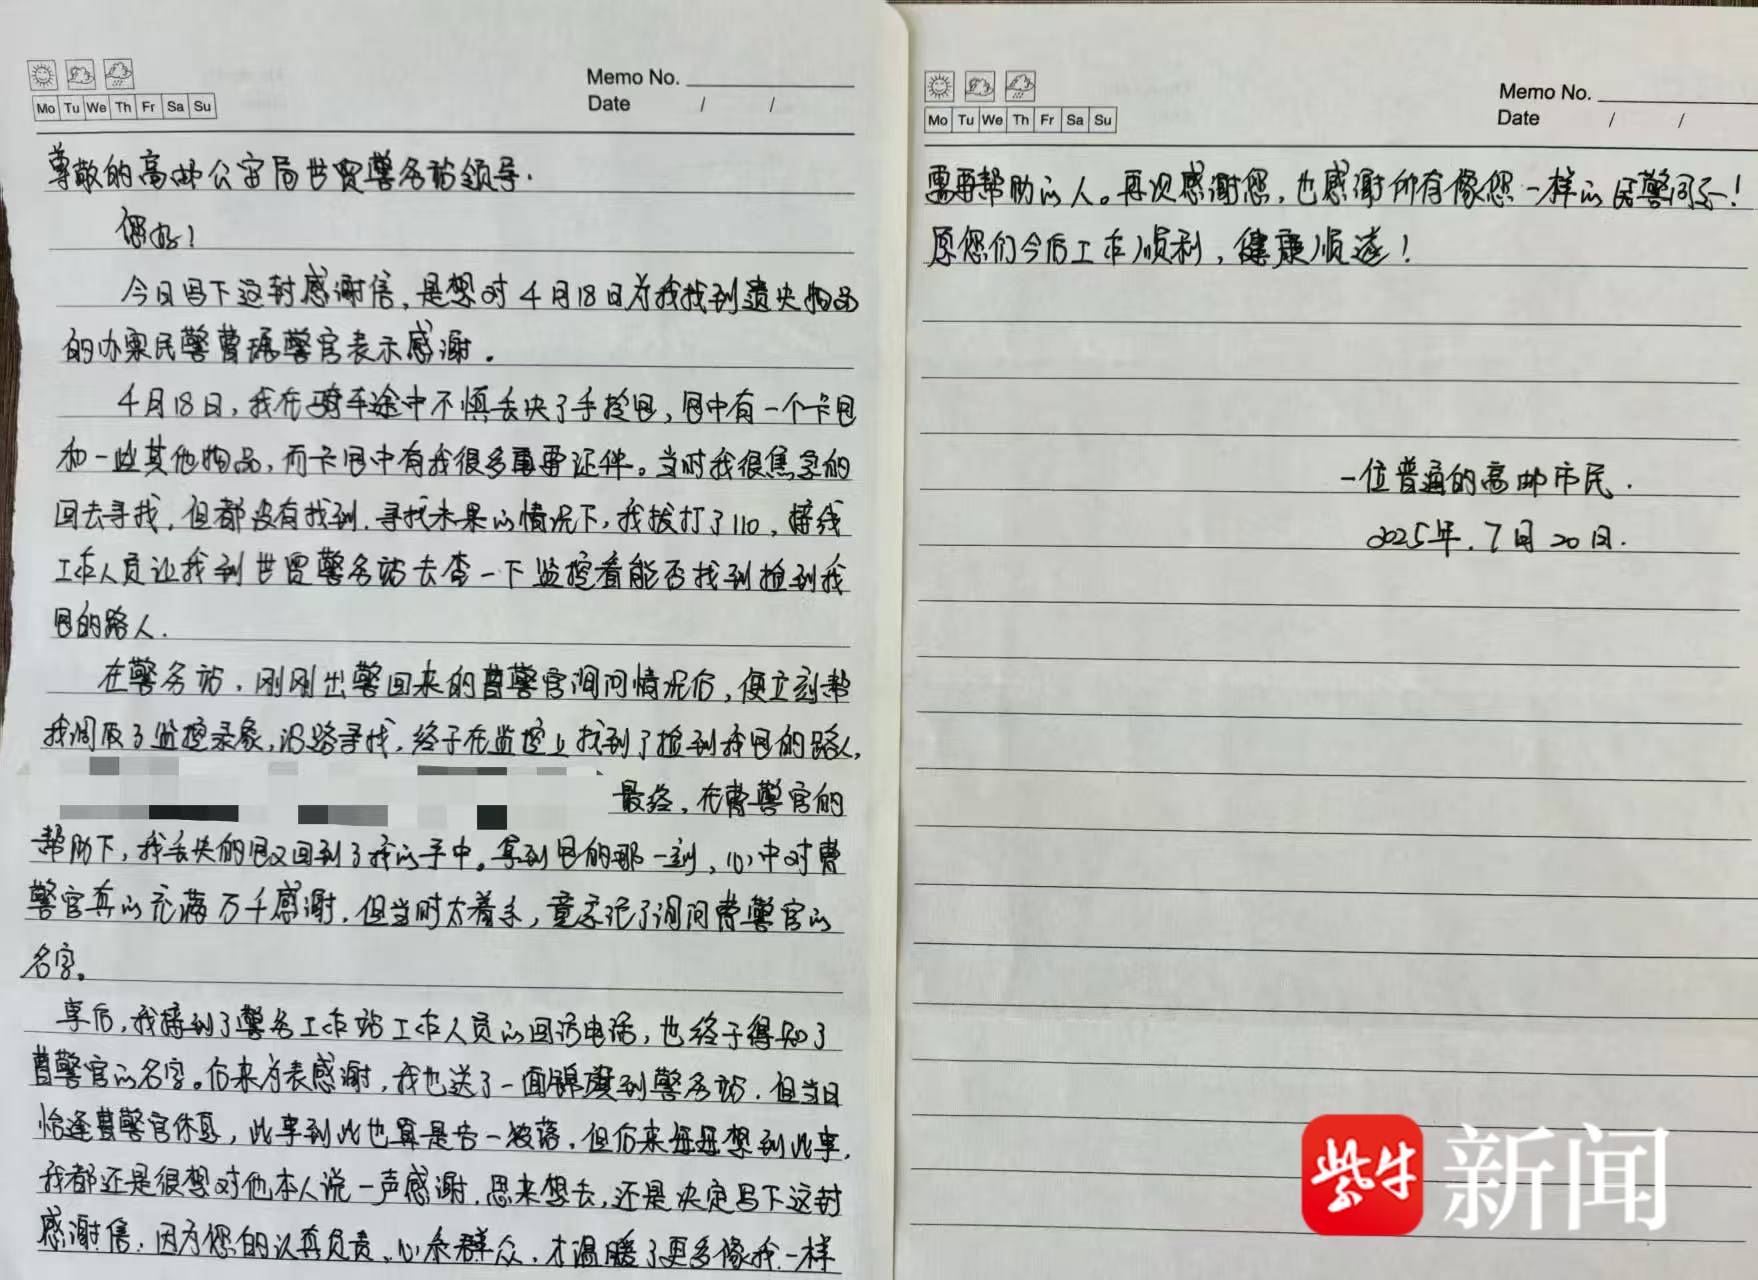 Memo No.
Mo Tu We Th Fr Sa Su
Date / /
尊敬的高邮公安局世贸警务站领导.
您好!
今日写下这封感谢信,是想对4月18日为我找到遗失物品
的办案民警曹 警官表示感谢.
4月18日,我在骑车途中不慎丢失了手拎包,包中有一个卡包
和一些其他物品,而卡包中有我很多重要证件。当时我很焦急的
回去寻找,但都没有找到.寻找未果的情况下,我拨打了110,接线
工作人员让我到世贸警务站去查一下监控看能否找到捡到我
包的路人.
在警务站,刚刚出警回来的曹警官询问情况后,便立刻帮
我调取了监控录象,沿路寻找,终于在监控上找到了捡到我包的路人,
最终,在曹警官的
帮助下,我丢失的包又回到了我的手中。拿到包的那一刻,心中对曹
警官真的充满万千感谢,但当时太着急,竟忘记了询问曹警官的
名字。
事后,我接到了警务工作站工作人员的回访电话,也终于得知了
曹警官的名字。后来为表感谢,我也送了一面锦旗到警务站.但当日
恰逢曹警官休息,此事到此也算是告一段落.但后来每每想到此事,
我都还是很想对他本人说一声感谢.思来想去,还是决定写下这封
感谢信.因为您的认真负责,心系群众,才温暖了更多像我一样
Memo No.
Mo Tu We Th Fr Sa Su
Date / /
需要帮助的人。再次感谢您,也感谢所有像您一样的民警同志!
愿您们今后工作顺利,健康顺遂!
一位普通的高邮市民.
2025年.7月20日.
紫牛新闻